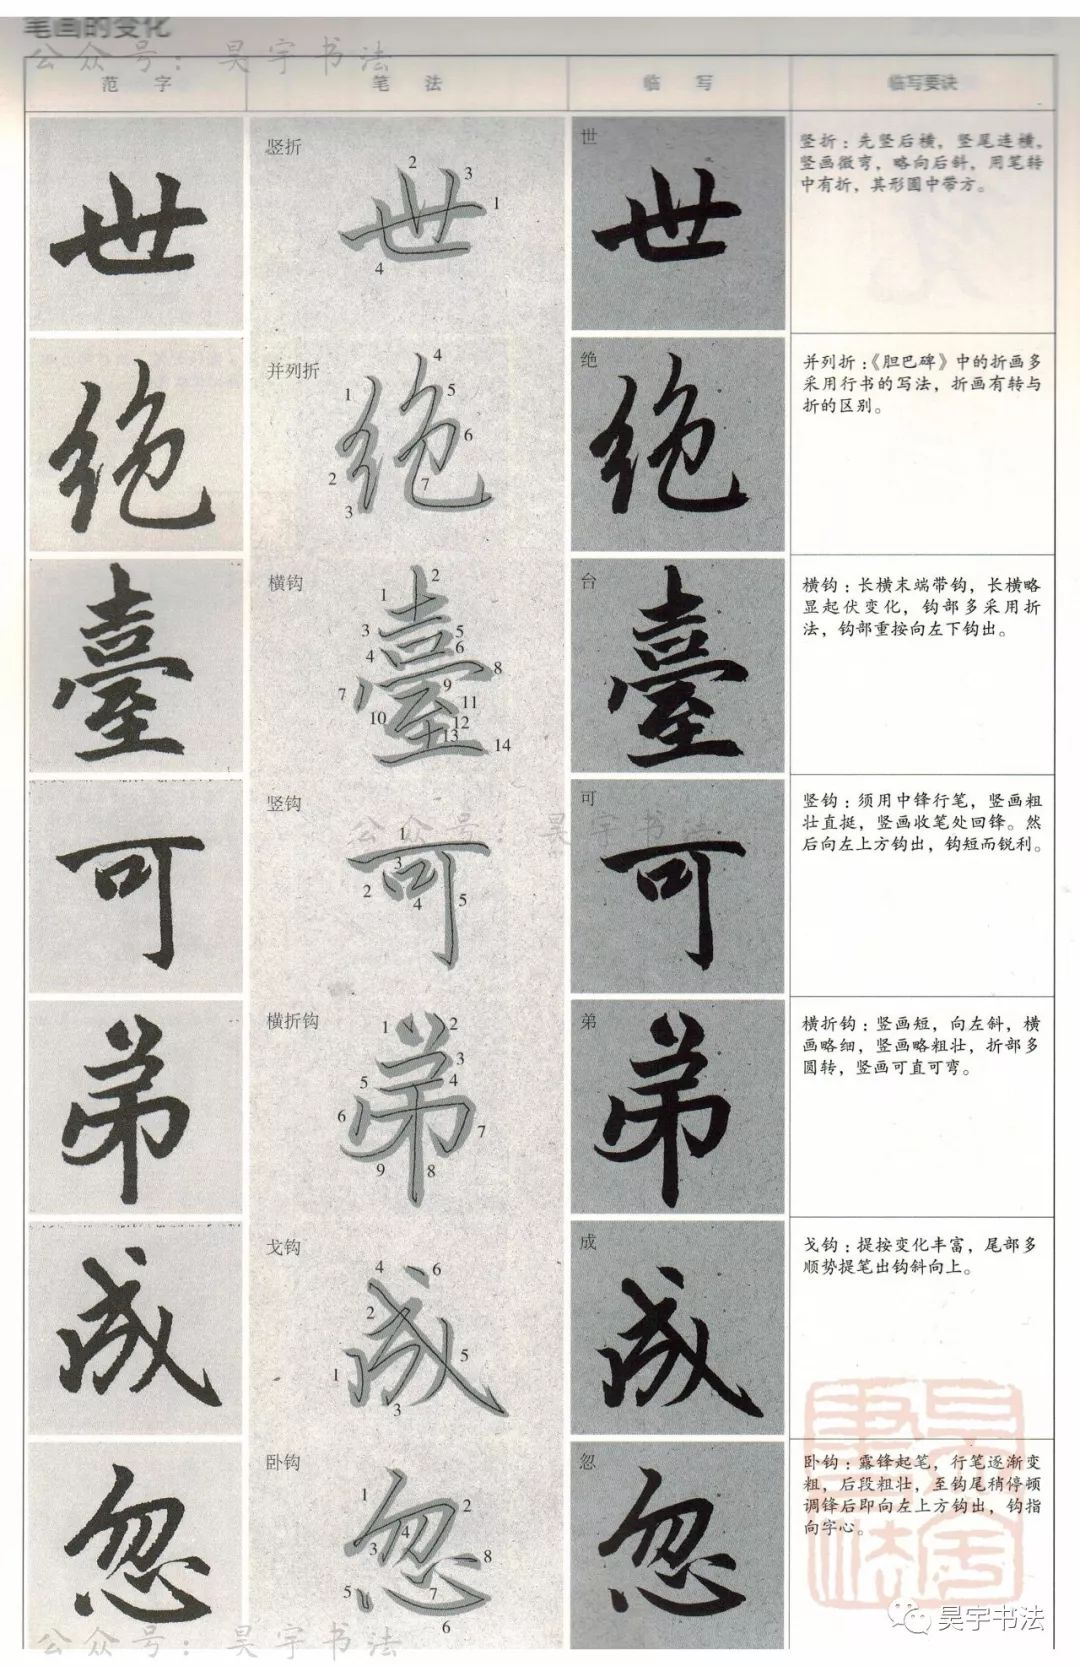 笔画的变化
公众号：昊宇书法
范字 笔法 临写 临写要诀
世
竖折
2
3
1
4
世
世
竖折：先竖后横，竖尾连横，
竖画微弯，略向后斜，用笔转
中有折，其形圆中带方。
绝
并列折
4
1
5
6
2
7
3
绝
绝
并列折：《胆巴碑》中的折画多
采用行书的写法，折画有转与
折的区别。
臺
横钩
2
1
3
5
6
4
8
9
7
11
10
12
13
14
台
臺
横钩：长横末端带钩，长横略
显起伏变化，钩部多采用折
法，钩部重按向左下钩出。
可
竖钩
公众号：昊宇书法
1
3
2
4
5
可
可
竖钩：须用中锋行笔，竖画粗
壮直挺，竖画收笔处回锋。然
后向左上方钩出，钩短而锐利。
弟
横折钩
1
2
3
5
4
6
7
9
8
弟
弟
横折钩：竖画短，向左斜，横
画略细，竖画略粗壮，折部多
圆转，竖画可直可弯。
成
戈钩
4
6
2
5
1
3
成
成
戈钩：提按变化丰富，尾部多
顺势提笔出钩斜向上。
忽
卧钩
1
2
4
3
8
5
7
6
忽
忽
卧钩：露锋起笔，行笔逐渐变
粗，后段粗壮，至钩尾稍停顿
调锋后即向左上方钩出，钩指
向字心。
昊宇书法
昊宇书法
公众号：昊宇书法